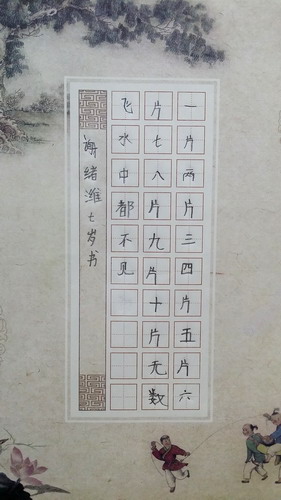 一片两片三四片五片六
片七八片九片十片无数
飞水中都不见
绪潍七岁书